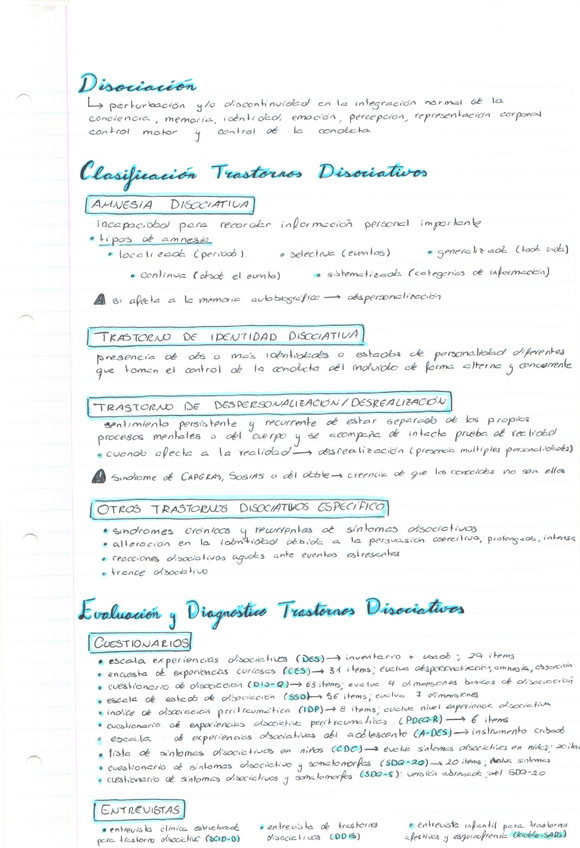 Disociación
↳ perturbación y/o discontinuidad en la integración normal de la
conciencia, memoria, identidad, emoción, percepción, representación corporal
control motor y control de la conducta
Clasificación Trastornos Disociativos
AMNESIA DISOCIATIVA
incapacidad para recordar información personal importante
• tipos de amnesia
• localizada (periodo) • selectiva (eventos) • generalizada (toda vida)
• continua (desde el evento) • sistematizada (categorías de información)
si afecta a la memoria autobiográfica → despersonalización
TRASTORNO DE IDENTIDAD DISOCIATIVA
presencia de dos o más identidades o estados de personalidad diferentes
que toman el control de la conducta del individuo de forma alterna y concurrente
TRASTORNO DE DESPERSONALIZACIÓN/DESREALIZACIÓN
sentimiento persistente y recurrente de estar separado de los propios
procesos mentales o del cuerpo y se acompaña de intacta prueba de realidad
• cuando afecta a la realidad → desrealización (presencia multiples personalidades)
Sindrome de CAPGRAS, SOSIAS o del doble → creencia de que los conocidos no son ellos
OTROS TRASTORNOS DISOCIATIVOS ESPECÍFICO
• síndromes crónicos y recurrentes de síntomas disociativos
• alteración en la identidad debida a la persuasión coercitiva, prolongada, intensa
• reacciones disociativas agudas ante eventos estresantes
• trance disociativo
Evaluación y Diagnóstico Trastornos Disociativos
CUESTIONARIOS
• escala experiencias disociativas (DES) → inventario + usado; 29 items
• encuesta de experiencias curiosas (CES) → 31 items; evalua despersonalización, amnesia, absorción
• cuestionario de disociación (DIS-Q) → 63 items; evalua 4 dimensiones basicas de disociación
• escala de estado de disociación (SSD) → 56 items; evalua 7 dimensiones
• indice de disociación peritraumática (IDP) → 8 items; evalua nivel experiencia disociativa
• cuestionario de experiencias disociativas peritraumaticas (PDEQ-R) → 6 items
• escala de experiencias disociativas del adolescente (A-DES) → instrumento cribado
• lista de síntomas disociativos en niños (CDC) → evalua síntomas disociativos en niños; 20 items
• cuestionario de síntomas disociativo y somatomorfos (SDQ-20) → 20 items; síntomas
• cuestionario de síntomas disociativos y somatomorfos (SDQ-5): versión abreviada del SDQ-20
ENTREVISTAS
• entrevista clínica estructurada • entrevista de trastorno • entrevista infantil para trastornos
para trastorno disociativo (SCID-D) disociativos (DDIS) afectivos y esquizofrenia (Kiddie-SADS)